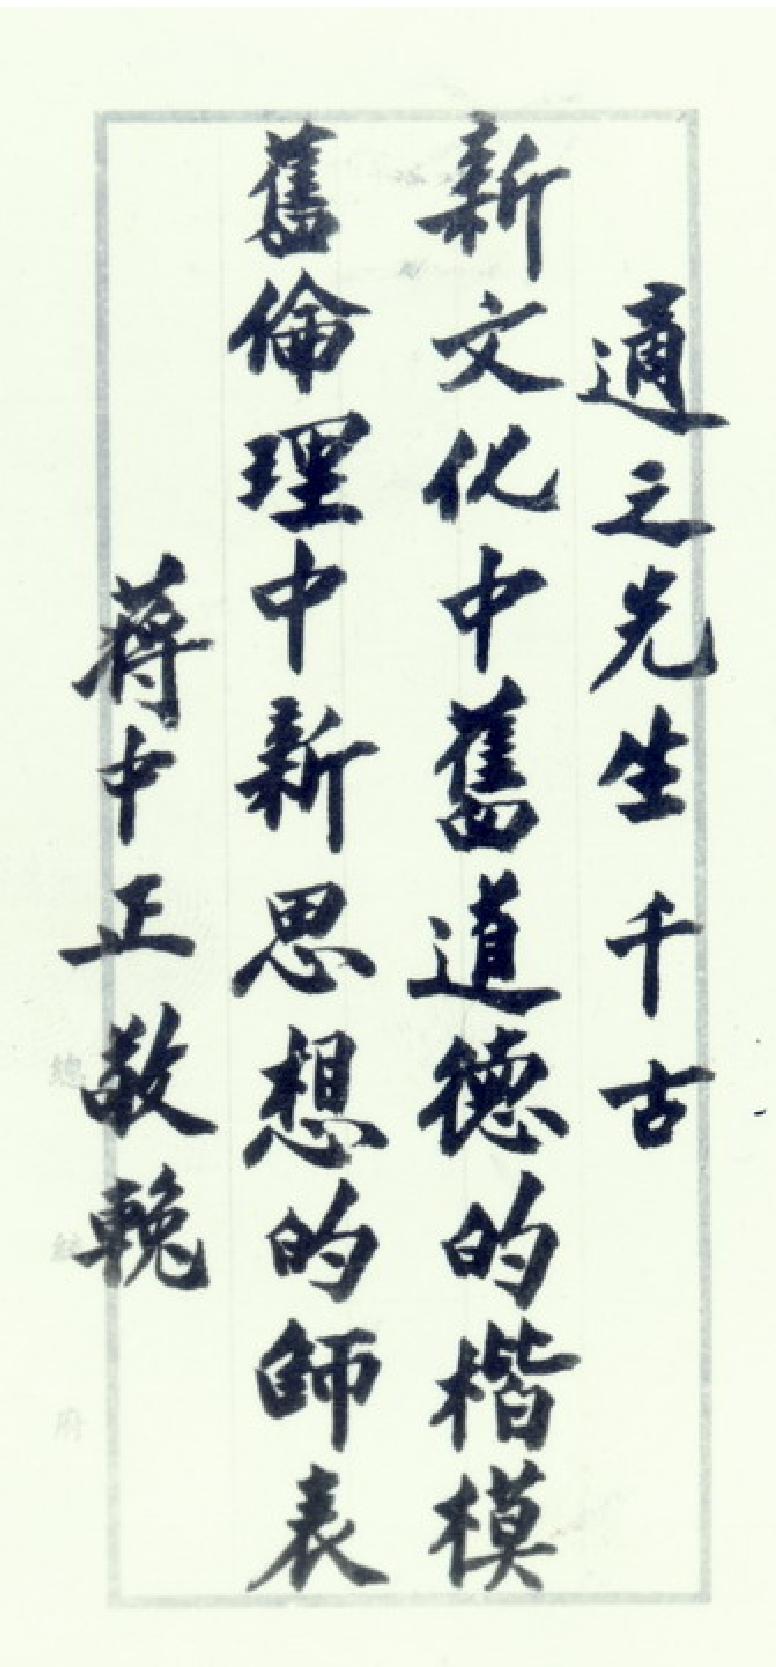 適之先生 千古
新文化中舊道德的楷模
舊倫理中新思想的師表
蔣中正敬輓
總統府